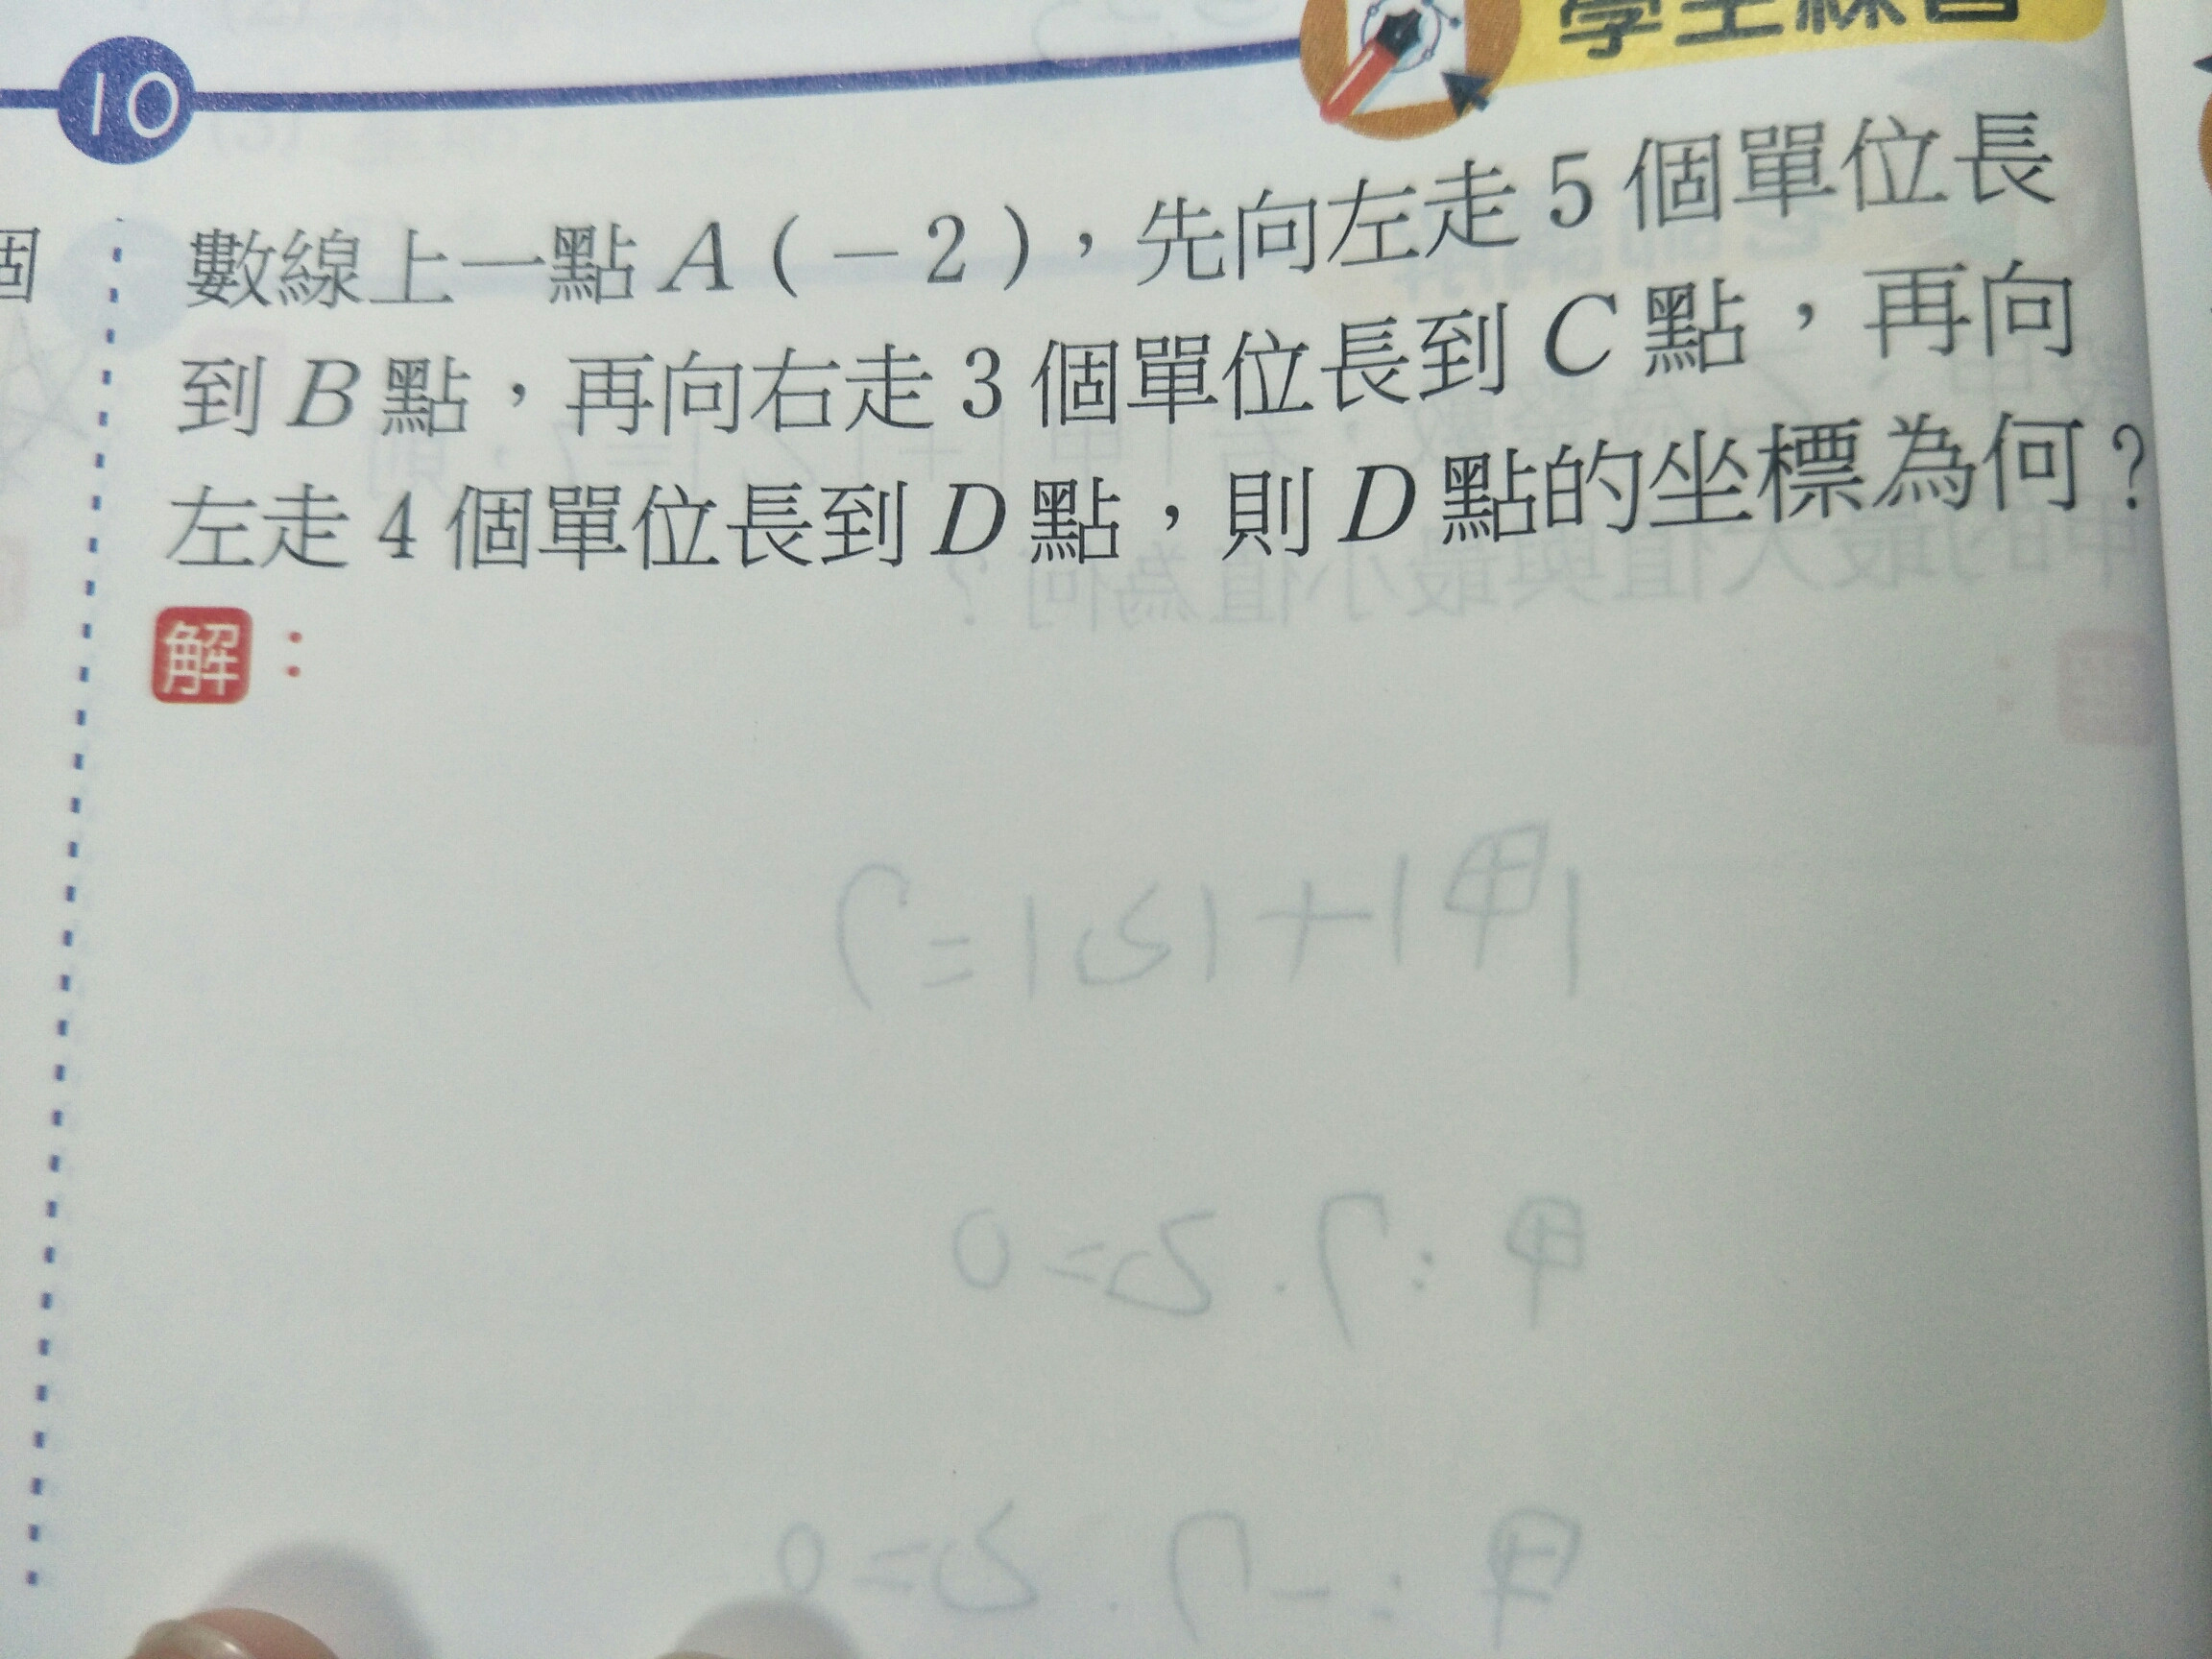 10
學生練習
個
數線上一點 A ( － 2 )，先向左走 5 個單位長
到 B 點，再向右走 3 個單位長到 C 點，再向
左走 4 個單位長到 D 點，則 D 點的坐標為何？
解：